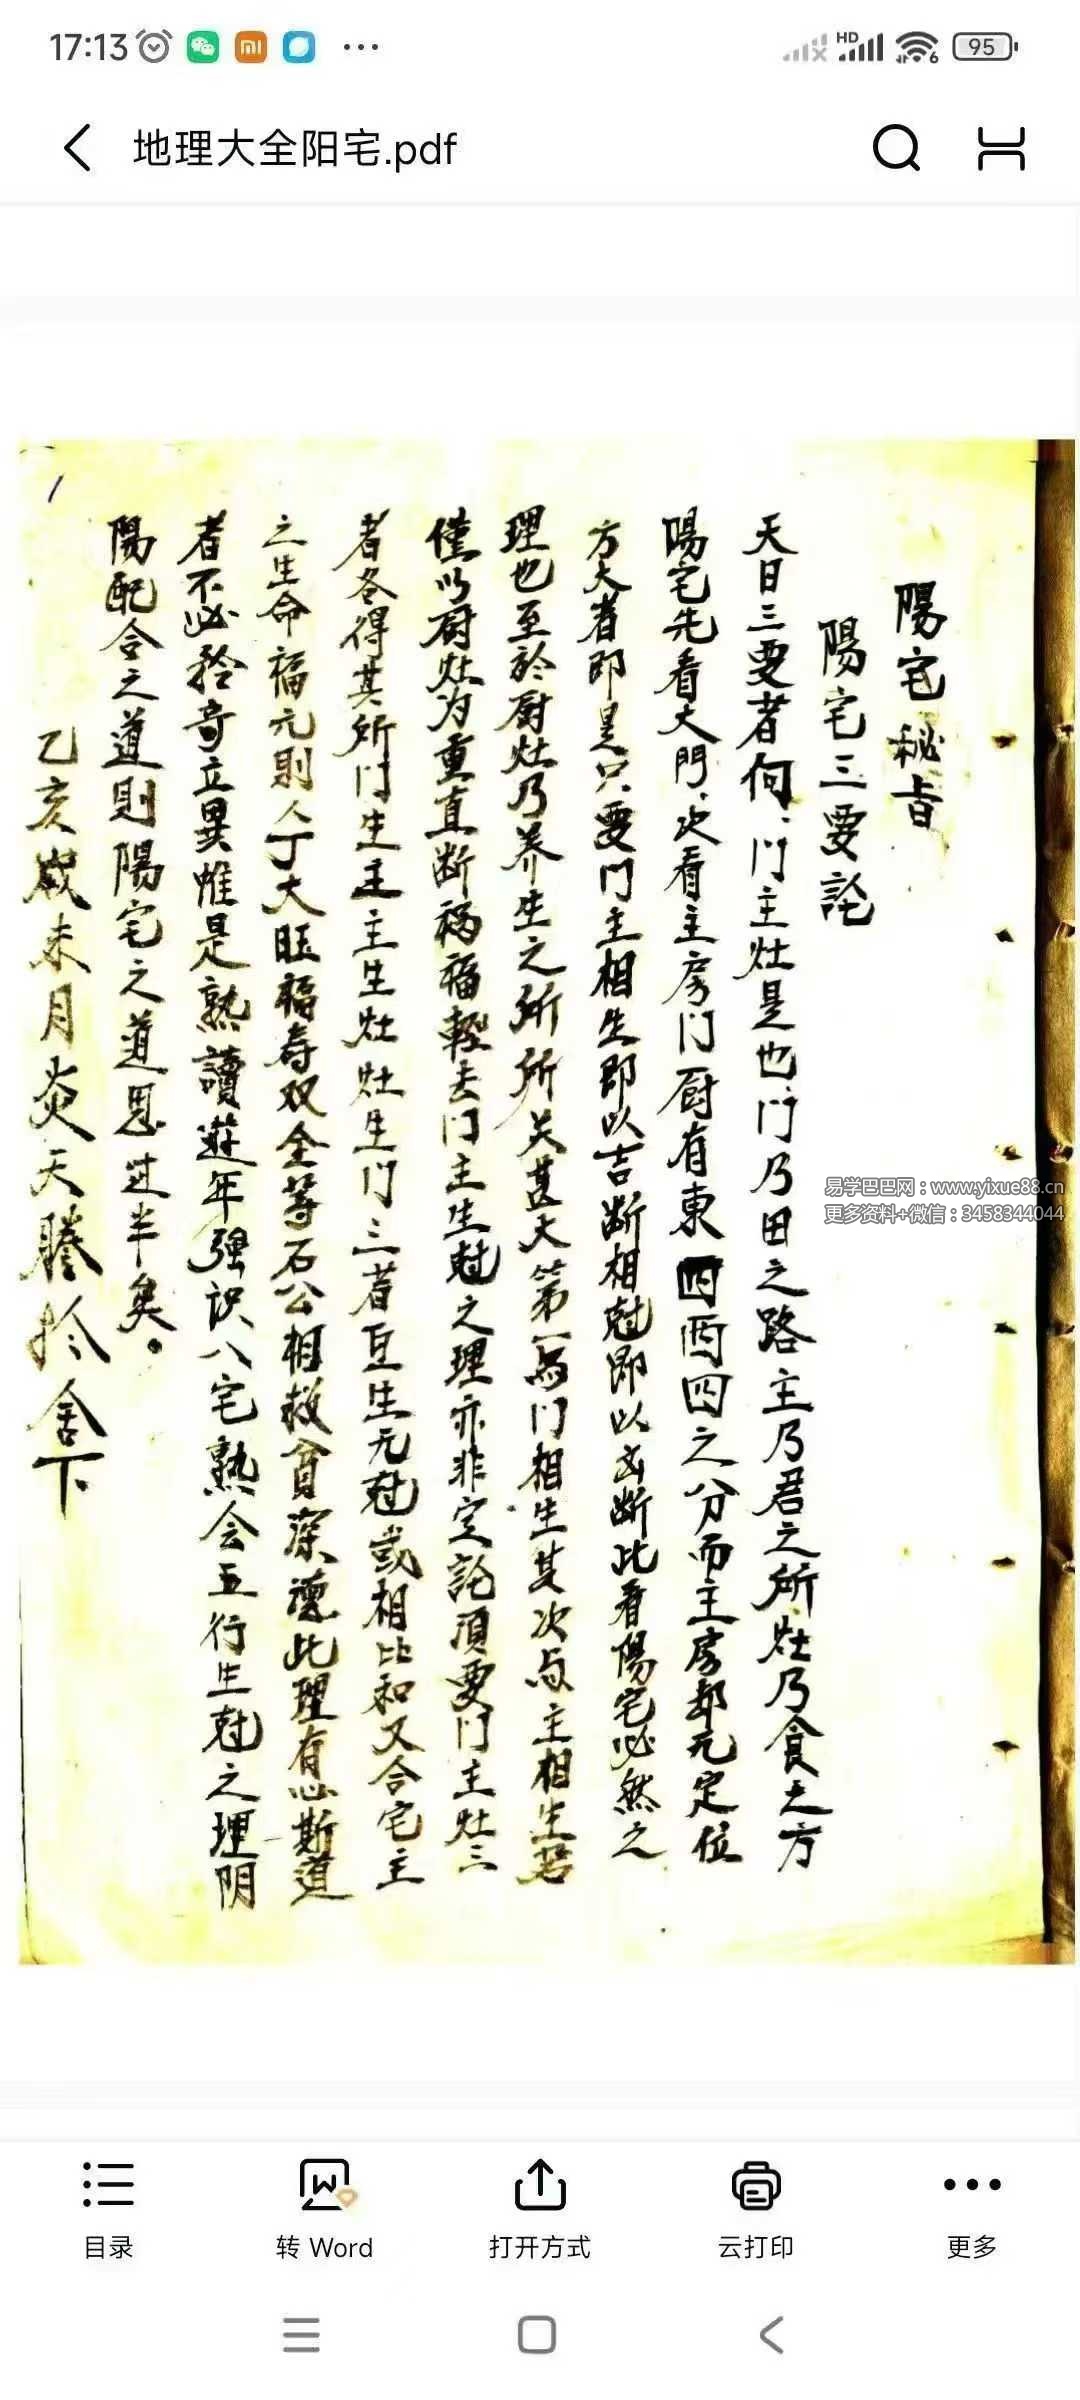 17:13
HD
6
95
地理大全阳宅.pdf
1
陽宅秘旨
陽宅三要論
夫曰三要者何、门主灶是也、门乃田之路主乃君之所灶乃食之方
陽宅先看大門、次看主房门厨有東四西四之分而主房却无定位
方大者即是只要门主相生即以吉断相尅即以凶断此看陽宅必然之
理也至於厨灶乃养生之所所关甚大第一爲门相生其次与主相生若
僅以厨灶为重直断祸福輕去门主生尅之理亦非定論須要门主灶三
者各得其所门生主主生灶灶生门三者互生无尅或相比和又合宅主
之生命福元則人丁大旺福寿双全等石公相救貧深德此理有心斯道
者不必矜奇立異惟是熟讀遊年强识八宅熟会五行生尅之理阴
陽配合之道則陽宅之道思过半矣。
乙亥歲未月炎天謄於舍下
易学巴巴网：www.yixue88.cn
更多资料+微信：3458344044
目录
转 Word
打开方式
云打印
更多